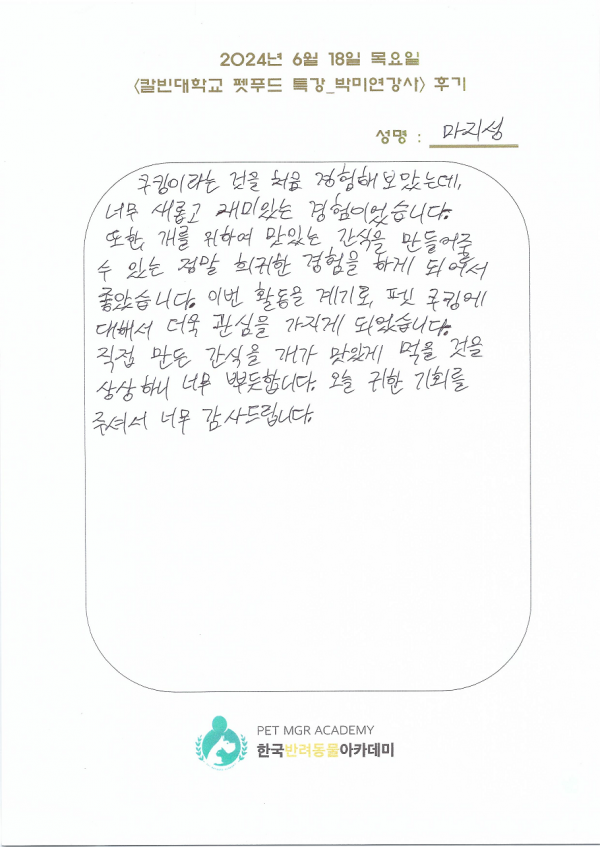 2024년 6월 18일 목요일
<칼빈대학교 펫푸드 특강_박미연강사> 후기
성명 : 마지성
쿠킹이라는 것을 처음 경험해 보았는데,
너무 새롭고 재미있는 경험이었습니다.
또한, 개를 위하여 맛있는 간식을 만들어줄
수 있는 정말 희귀한 경험을 하게 되어서
좋았습니다. 이번 활동을 계기로, 펫 쿠킹에
대해서 더욱 관심을 가지게 되었습니다.
직접 만든 간식을 개가 맛있게 먹을 것을
상상하니 너무 뿌듯합니다. 오늘 귀한 기회를
주셔서 너무 감사드립니다.
PET MGR ACADEMY
한국반려동물아카데미